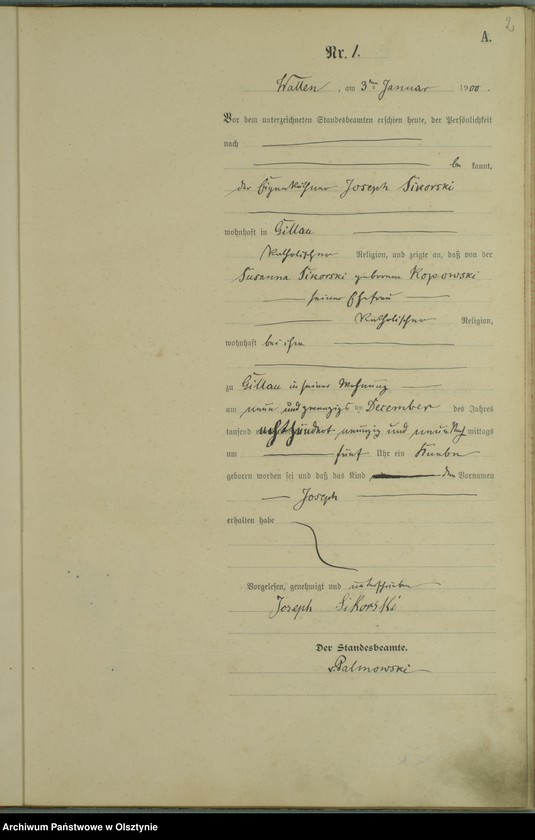 2
A.
Nr. 1.
Wallen, am 3ten Januar 1900.
Vor dem unterzeichneten Standesbeamten erschien heute, der Persönlichkeit
nach
be kannt,
der Eigenkäthner Joseph Sikorski
wohnhaft in Gillau
katholischer Religion, und zeigte an, daß von der
Susanna Sikorski geborenen Kopowski
seiner Ehefrau
katholischer Religion,
wohnhaft bei ihm
zu Gillau in seiner Wohnung
am neun und zwanzigsten December des Jahres
tausend achthundert neunzig und neun Nachmittags
um fünf Uhr ein Knabe
geboren worden sei und daß das Kind den Vornamen
Joseph
erhalten habe
Vorgelesen, genehmigt und unterschrieben
Joseph Sikorski
Der Standesbeamte.
v. Palmowski
Archiwum Państwowe w Olsztynie